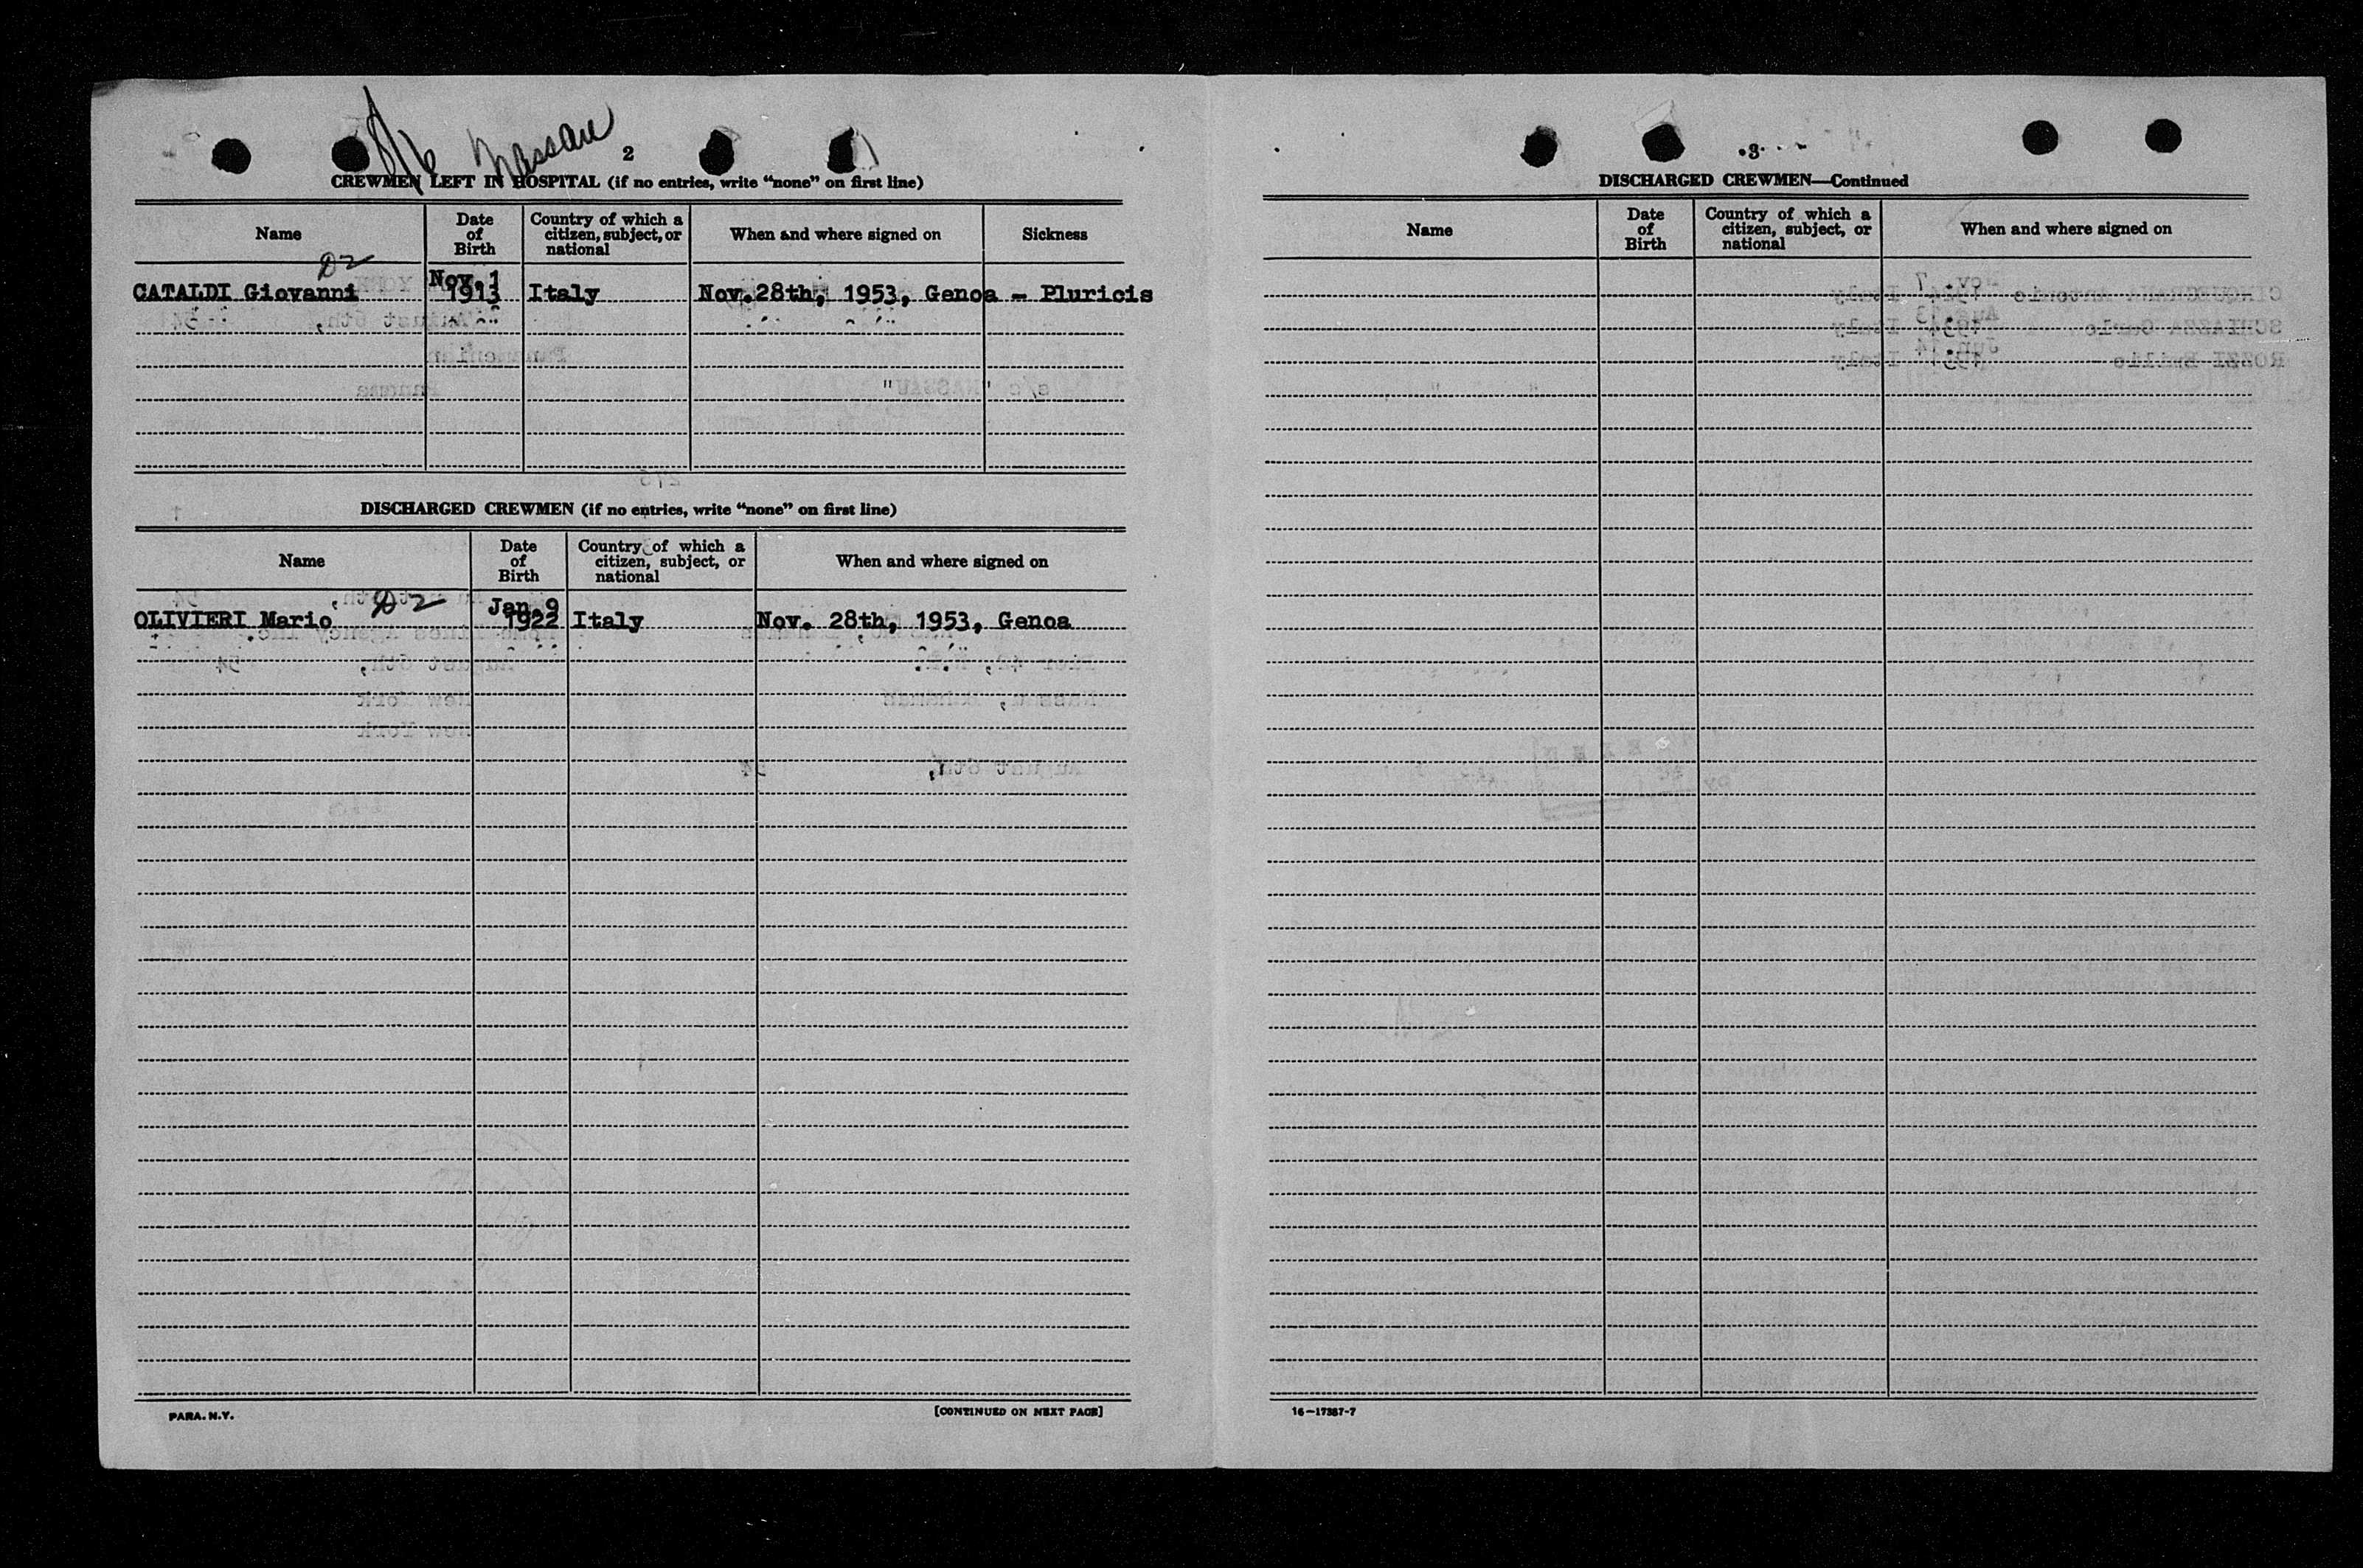 Nassau
2
CREWMEN LEFT IN HOSPITAL (if no entries, write “none” on first line)
Name
Date of Birth
Country of which a citizen, subject, or national
When and where signed on
Sickness
D2
CATALDI Giovanni Nov. 1 1913 Italy Nov.28th, 1953, Genoa - Pluricis
DISCHARGED CREWMEN (if no entries, write “none” on first line)
Name
Date of Birth
Country of which a citizen, subject, or national
When and where signed on
OLIVIERI Mario D2 Jan.9 1922 Italy Nov. 28th, 1953, Genoa
PARA. N.Y.
[CONTINUED ON NEXT PAGE]
3
DISCHARGED CREWMEN—Continued
Name
Date of Birth
Country of which a citizen, subject, or national
When and where signed on
16—17387-7